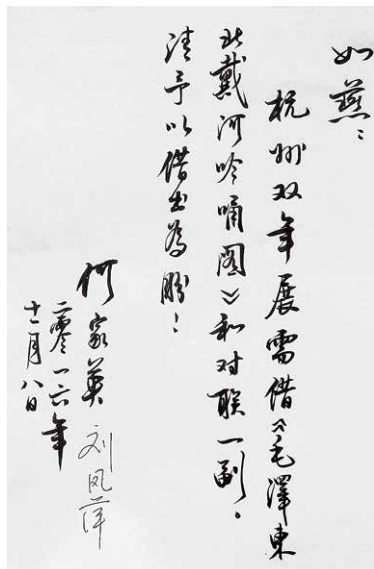 如燕：
杭州双年展需借《毛澤東
北戴河吟誦图》和对联一副。
请予以借出為盼！
何家英
刘凤萍
二零一六年
十一月八日